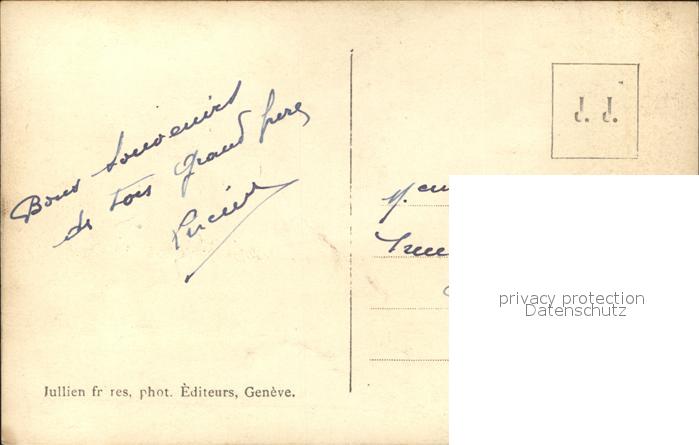 Bons souvenirs
de ton grand frère
Lucien
J. J.
privacy protection
Datenschutz
Jullien fr res, phot. Èditeurs, Genève.